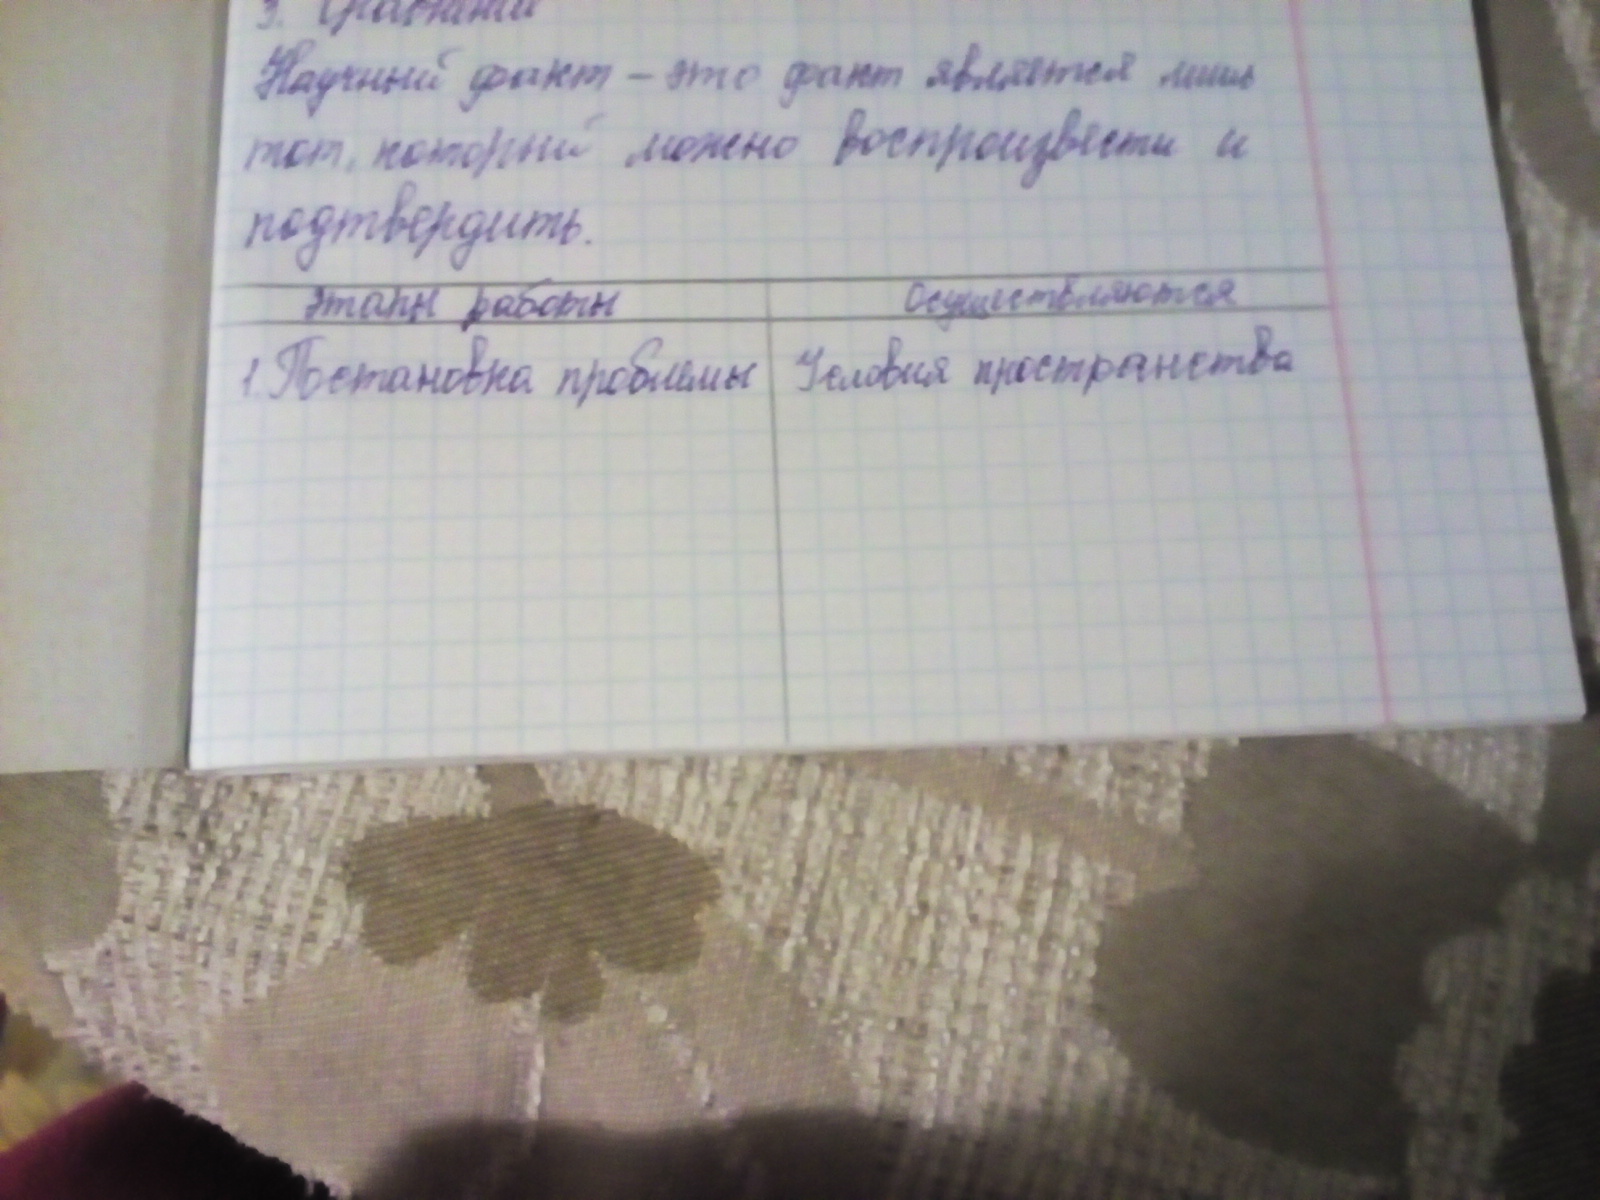 3. Сравнения
Научный факт - это факт является лишь
тот, который можно воспроизвести и
подтвердить.
Этапы работы Осуществляются
1. Постановка проблемы Условия пространства